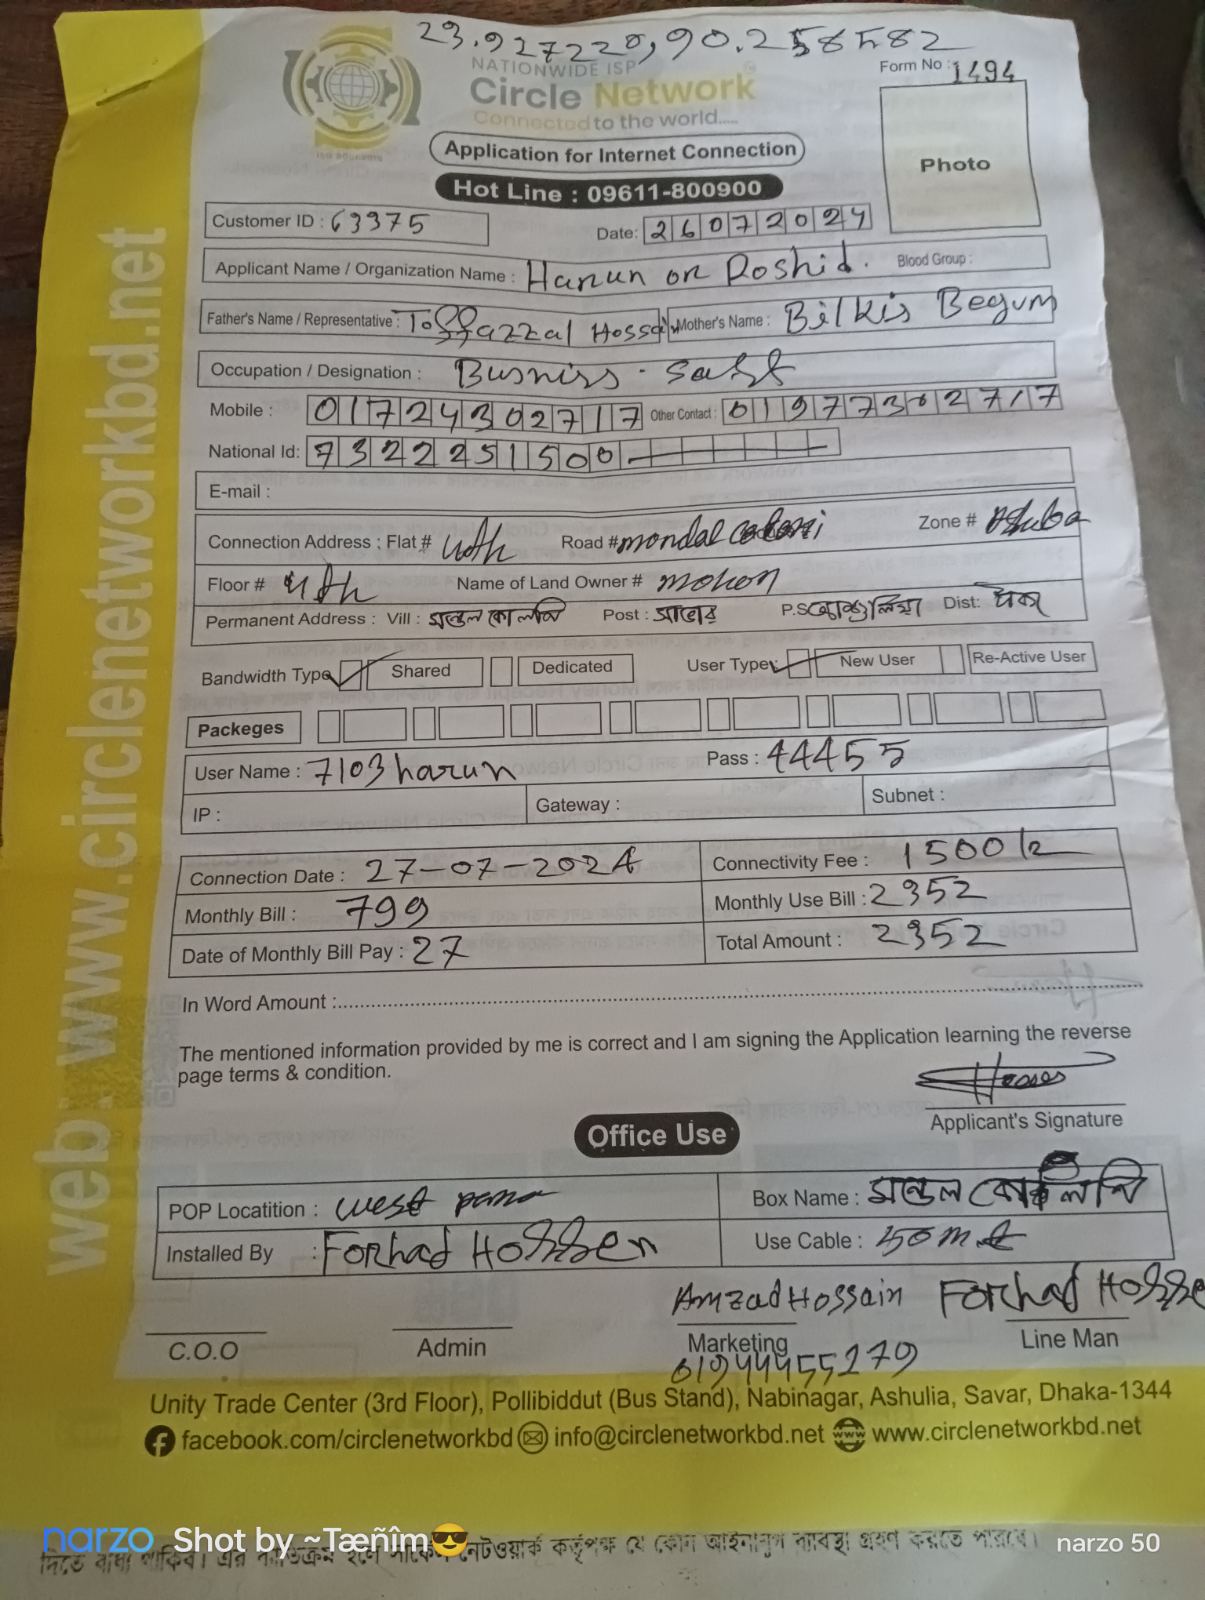 23.927220,90.258582
NATIONWIDE ISP
Circle Network
Connected to the world.....
Form No : 1494
Photo
Application for Internet Connection
Hot Line : 09611-800900
Customer ID : 63375
Date: 26072024
Applicant Name / Organization Name : Harun or Roshid. Blood Group :
Father's Name / Representative : Toffazzal Hossain Mother's Name : Bilkis Begum
Occupation / Designation : Busniss
Mobile : 01724302717 Other Contact : 01977302717
National Id: 7322251500
E-mail :
Connection Address : Flat # 4th Road # mondal Zone #
Floor # 4th Name of Land Owner # mohon
Permanent Address : Vill : মন্ডল কোলনি Post : সাভার P.S Dist: ঢাকা
Bandwidth Type Shared Dedicated User Type: New User Re-Active User
Packeges
User Name : 7103harun Pass : 44455
IP : Gateway : Subnet :
Connection Date : 27-07-2024 Connectivity Fee : 1500
Monthly Bill : 799 Monthly Use Bill : 2352
Date of Monthly Bill Pay : 27 Total Amount : 2352
In Word Amount :
The mentioned information provided by me is correct and I am signing the Application learning the reverse
page terms & condition.
Applicant's Signature
Office Use
POP Locatition : west para Box Name : মন্ডল
Installed By : Forhad Hossen Use Cable : 50m
Amzad Hossain Forhad
C.O.O Admin Marketing Line Man
01944455279
Unity Trade Center (3rd Floor), Pollibiddut (Bus Stand), Nabinagar, Ashulia, Savar, Dhaka-1344
facebook.com/circlenetworkbd info@circlenetworkbd.net www.circlenetworkbd.net
web : www.circlenetworkbd.net
দিতে বাধ্য থাকিব। এর ব্যতিক্রম হলে সার্কেল নেটওয়ার্ক কর্তৃপক্ষ যে কোন আইনানুগ ব্যবস্থা গ্রহণ করতে পারবে।
narzo Shot by ~Tæñîm😎 narzo 50